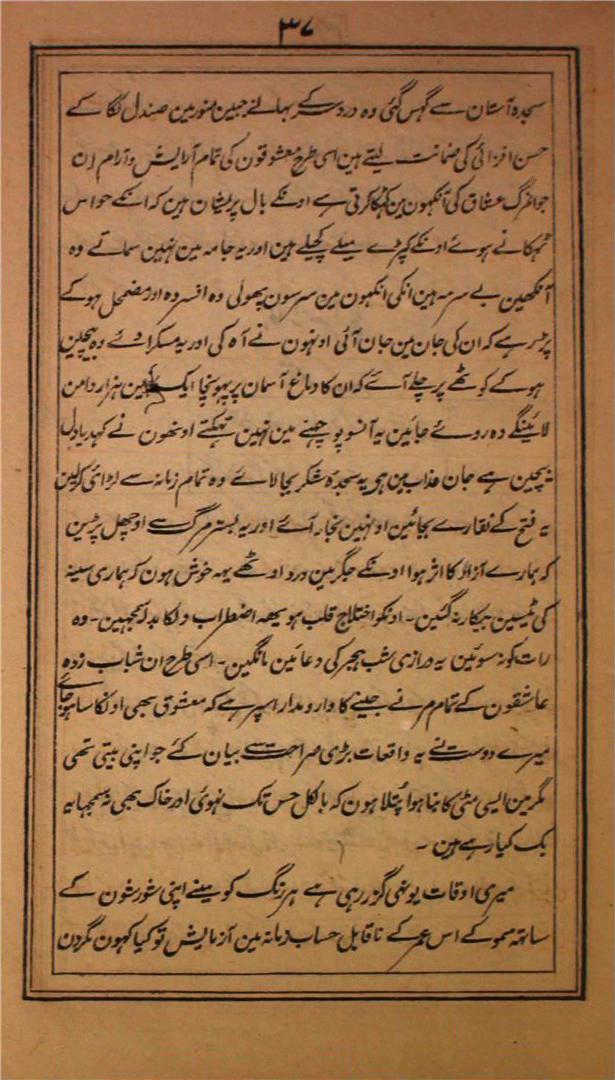 ۳۷
سجدہ آستان سے گہس گئی وہ درد سر کے بہانے جبین منور مین صندل لگا کے
حسن افزائی کی ضمانت لیتے ہین اسی طرح معشوقون کی تمام آرایش و آرام ان
جوانمرگ عشاق کی آنکہون مین کہٹکا کرتی ہے اونکے بال پریشان ہین کہ انکے حواس
ٹہکانے ہوئے اونکے کپڑے میلے کچیلے ہین اور یہ جامہ مین نہین سماتے وہ
آنکہین بے سرمہ ہین انکی انکہون مین سرسون پھولی وہ افسردہ اور مضمحل ہو کے
پڑ رہے کہ ان کی جان مین جان آئی اونہون نے آہ کی اور یہ مسکرا دئے وہ بیچین
ہو کے کوٹھے پر چلے آئے کہ ان کا دماغ آسمان پر پہونچا ایک ہزار دامن
لائینگے وہ روئے جائین یہ آنسو پوچہنے مین نہین تہکتے اونھون نے کہدیا دل
بیچین ہے جان عذاب مین ہی یہ سجدہ شکر بجا لائے وہ تمام زمانہ سے لڑائی کر لین
یہ فتح کے نقارے بجائین اونہین بخار آئے اور یہ بستر مرگ سے اوچھل پڑین
کہ ہمارے آزار کا اثر ہوا اونکے جگر مین درد اوٹھے یہہ خوش ہون کہ ہماری سینہ
کی ٹیسین بیکار نہ گئین ۔ اونکو اختلاج قلب ہو یہہ اضطراب دلکا بدلہ سمجہین ۔ وہ
رات کو نہ سوئین یہ درازی شب ہجر کی دعائین مانگین ۔ اسی طرح ان شباب زدہ
عاشقون کے تمام مرنے جینے کا دار و مدار اسپر ہے کہ معشوق بھی اونکا سا ہو جائے
میرے دوست نے یہ واقعات بڑی صراحت سے بیان کئے جو اپنی بیتی تھی
مگر مین ایسی مٹی کا بنا ہوا پتلا ہون کہ بالکل حس تک نہوئی اور خاک بھی نہ سمجہا یہ
بک کیا رہے ہین ۔
میری اوقات یونہی گزر رہی ہے ہر رنگ کو مینے اپنی شورشون کے
ساتھہ سمو کے اس عمر کے ناقابل حساب زمانہ مین آزمایش تو کیا کہون مگر دن